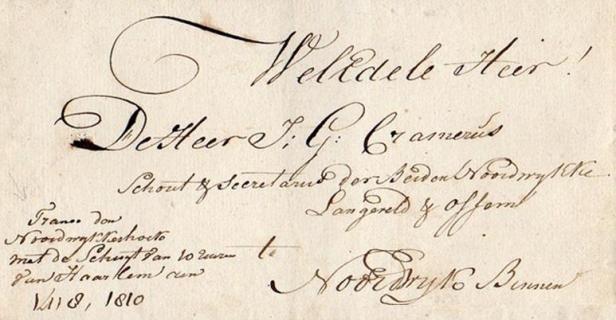 WelEdele Heer!
De Heer J: G: Cramerus
Schout & Secretarius der Beiden Noordwykke
Langeveld & Offem
te
Noordwyk Binnen
Franco den
Noordwykkerhoek
met de Schuyt van 10 uuren
van Haarlem aan
14/8, 1810